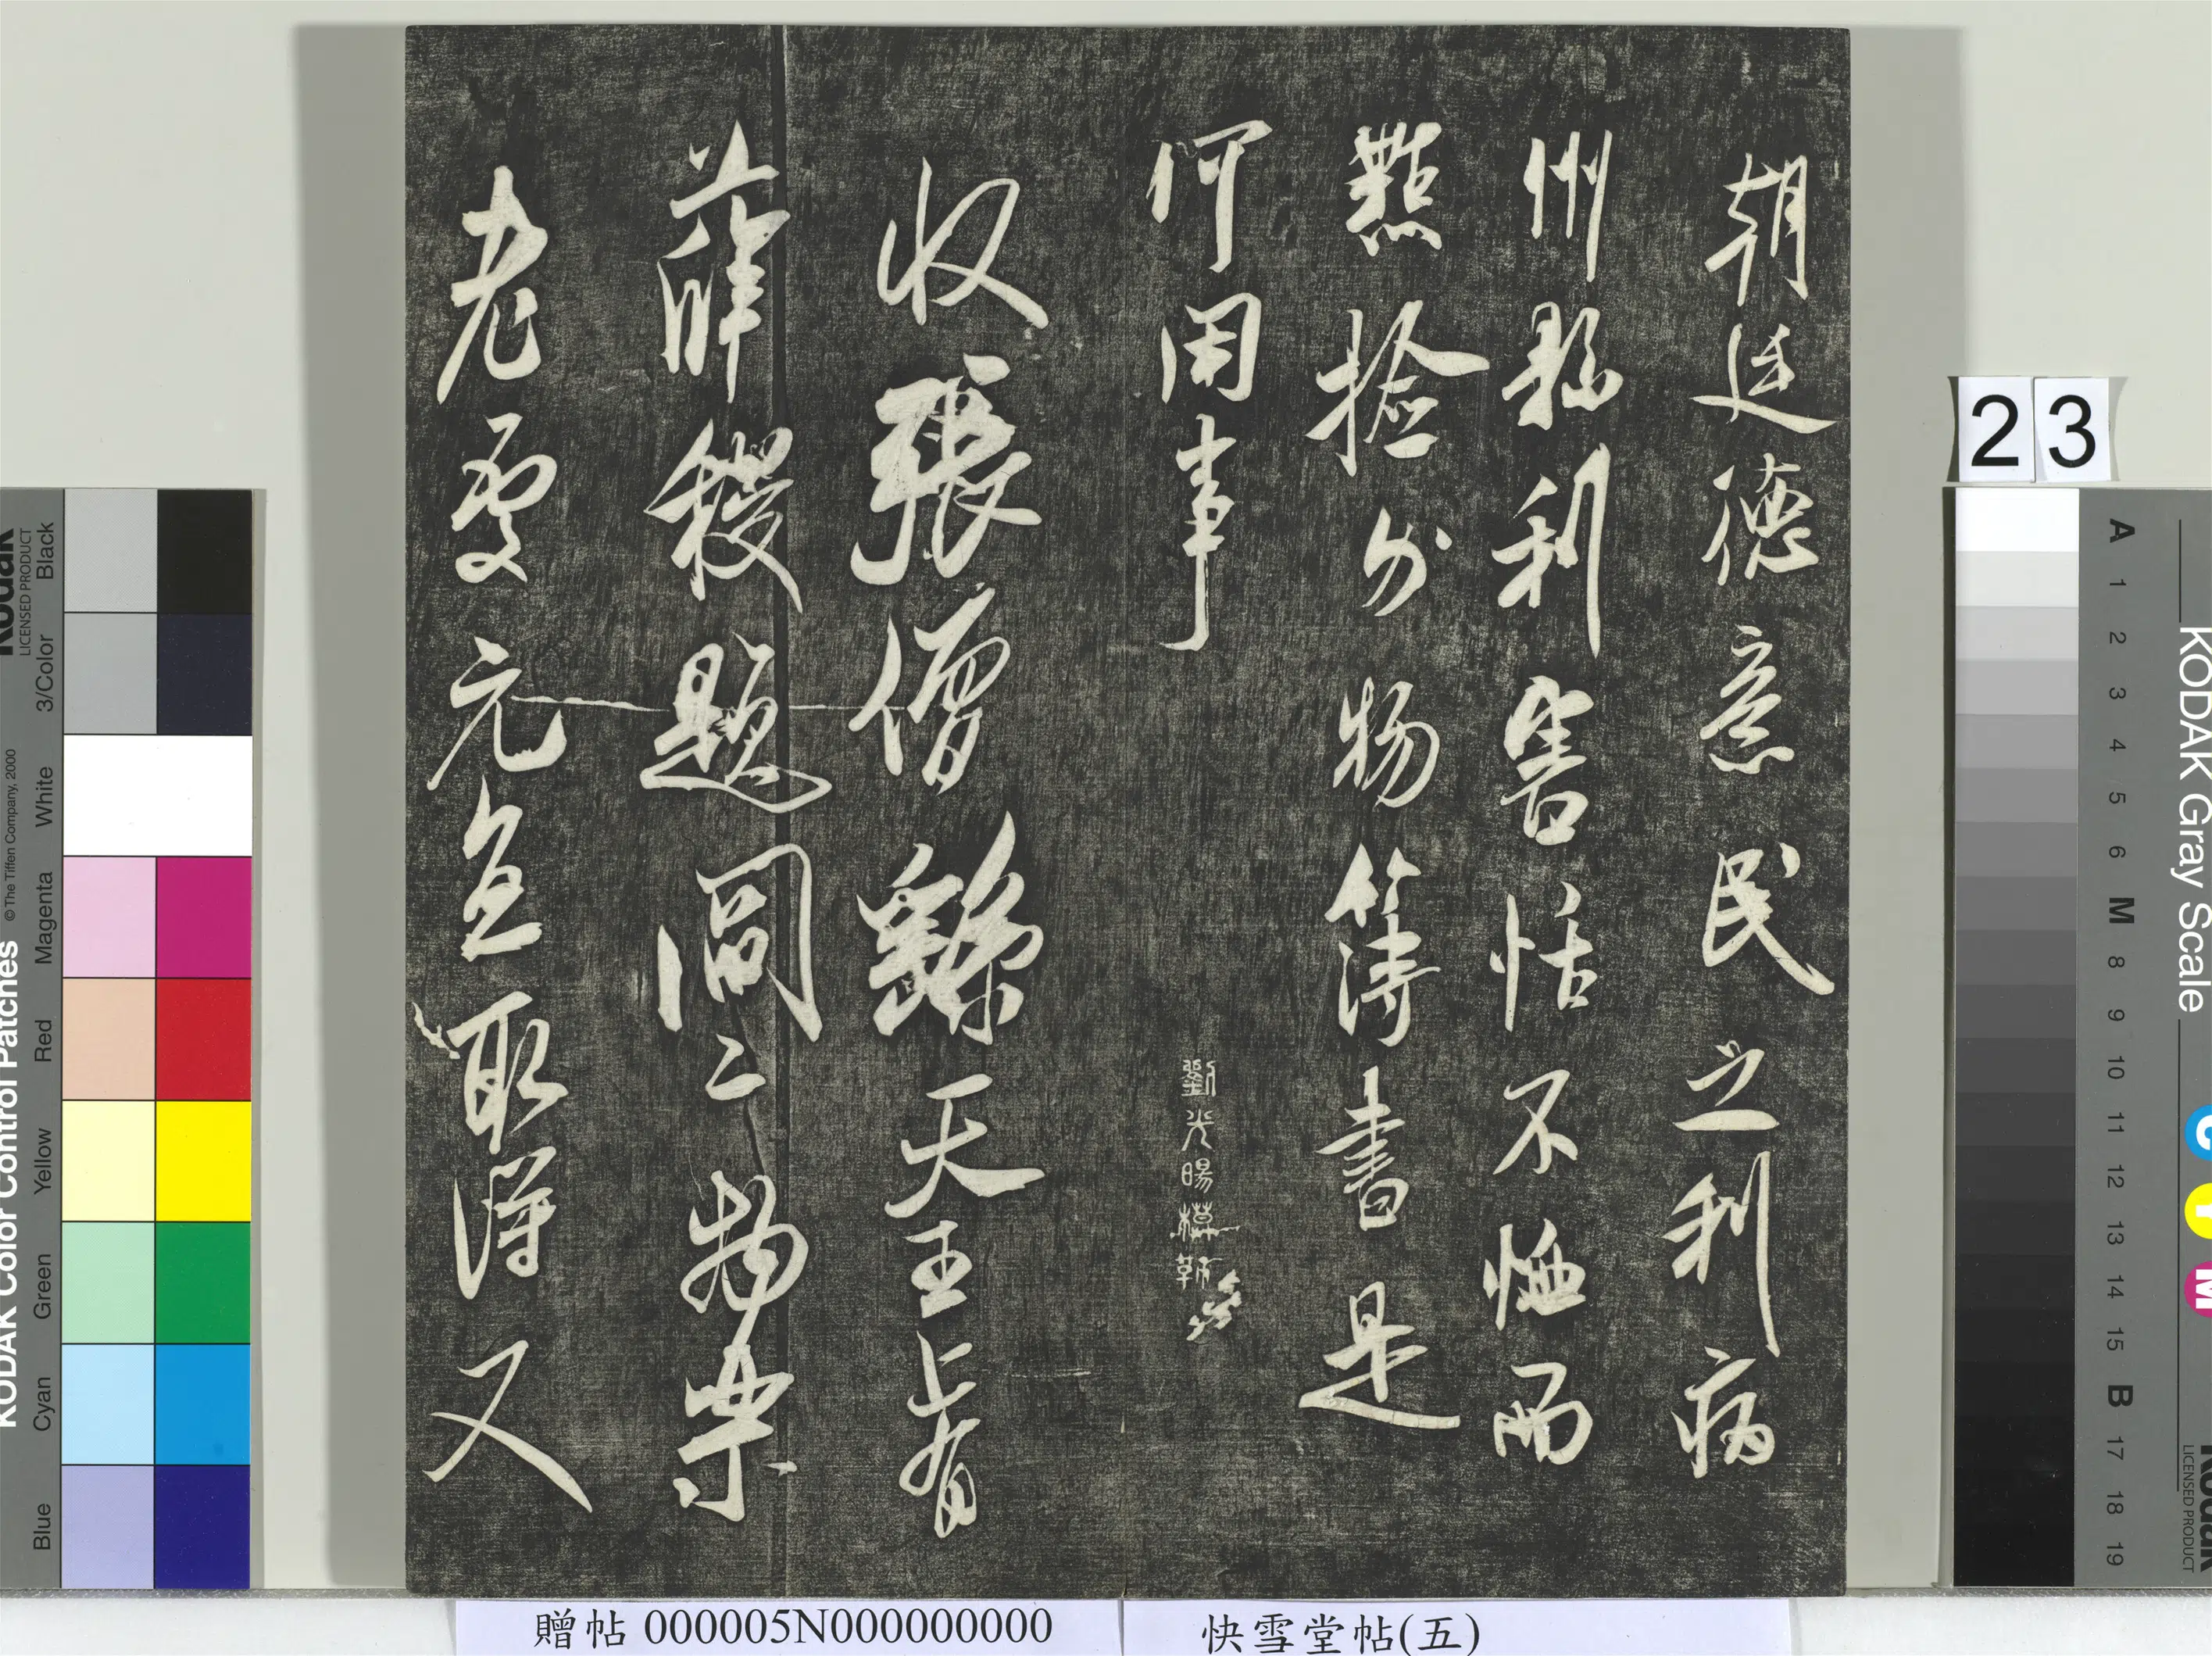 朝廷德意民之利病
州縣利害恬不恤而
點撿外物簿書是
何用事
劉光暘模勒
收張僧繇天王上有
薛稷題閻二物樂
老處元直取得又
23
贈帖 000005N000000000
快雪堂帖(五)
KODAK Color Control Patches
© The Tiffen Company, 2000
Kodak
LICENSED PRODUCT
Blue
Cyan
Green
Yellow
Red
Magenta
White
3/Color
Black
KODAK Gray Scale
A 1 2 3 4 5 6 M 8 9 10 11 12 13 14 15 B 17 18 19
C Y M
Kodak
LICENSED PRODUCT